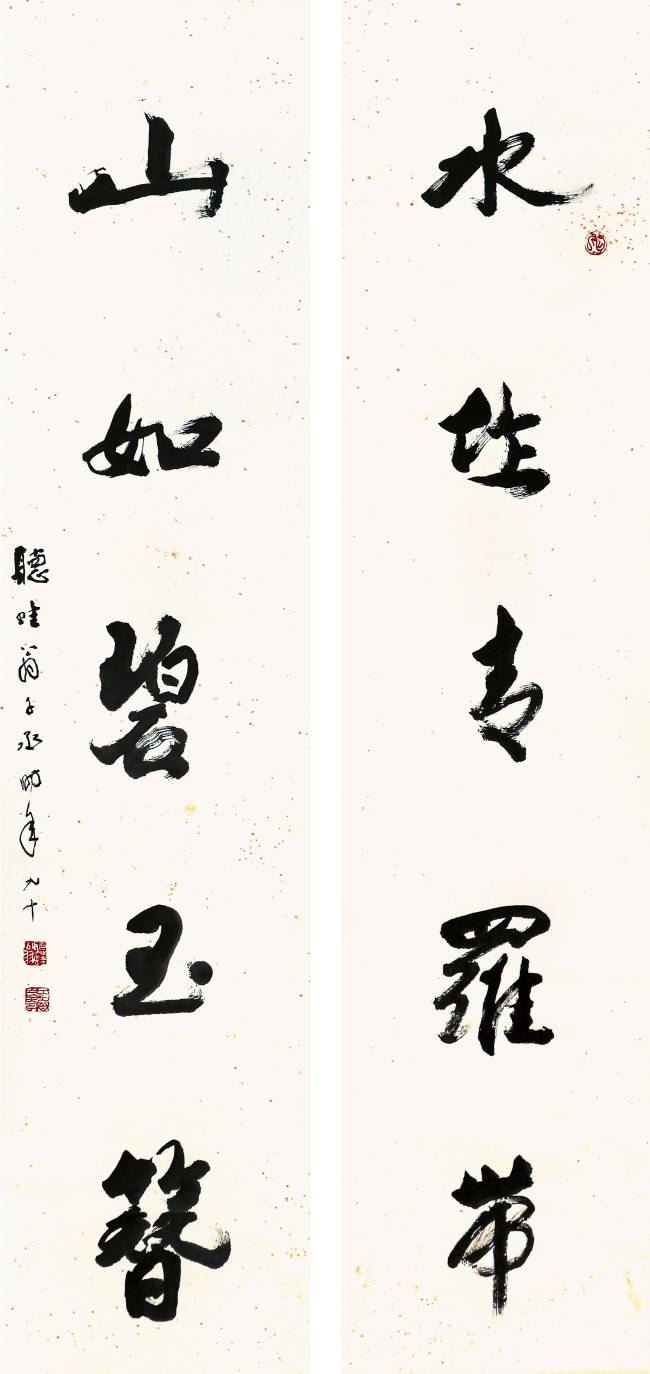 水作青羅帶
山如碧玉簪
聽蛙翁子丞時年九十